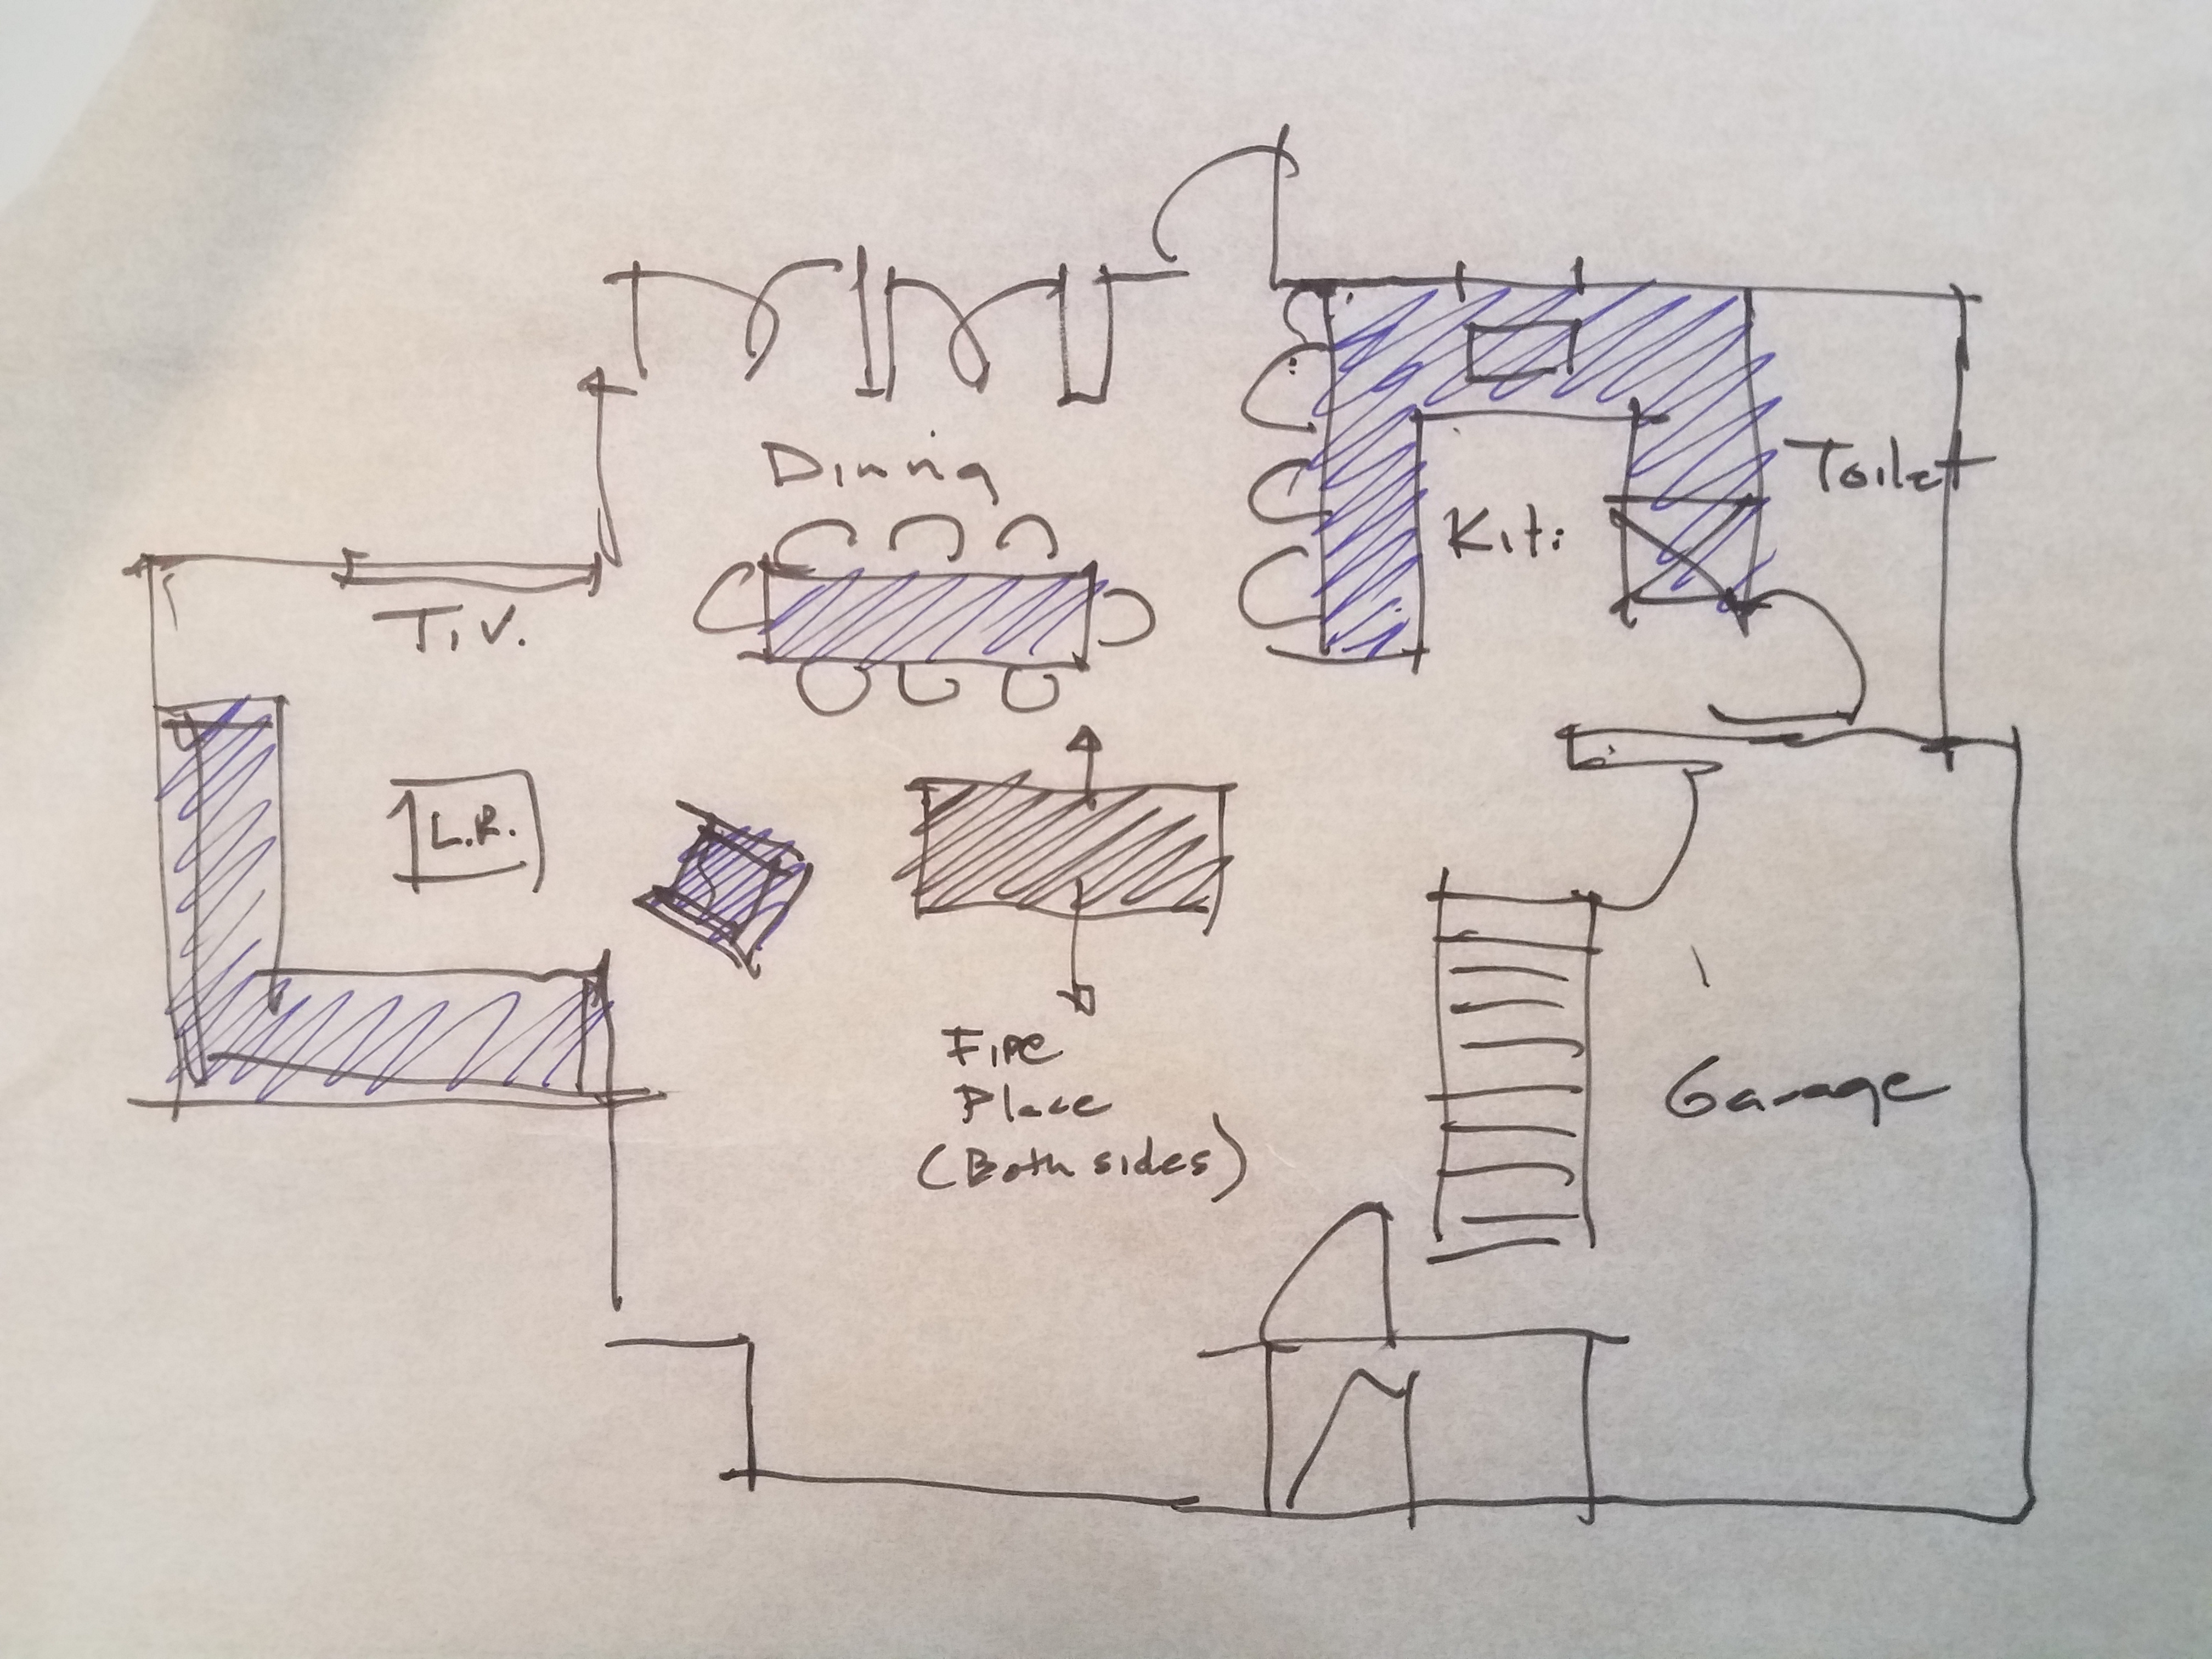 Dining
Toilet
Kiti
T.V.
L.R.
Fire
Place
(Both sides)
Garage